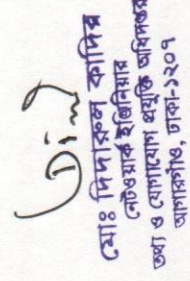 মোঃ দিদারুল কাদির
নেটওয়ার্ক ইঞ্জিনিয়ার
তথ্য ও যোগাযোগ প্রযুক্তি অধিদপ্তর
আগারগাঁও, ঢাকা-১২০৭